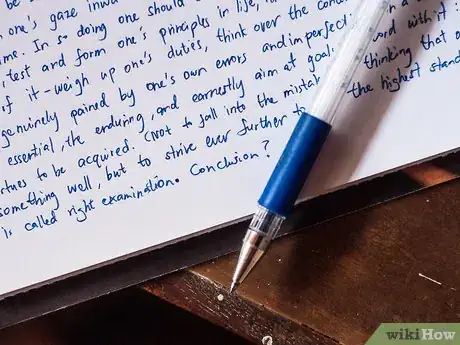 one's gaze inwa
me. In so doing one should
, test and form one's principles in life,
f it - weigh up one's duties, think over the con
genuinely gained by one's own errors and imperfecti
essential, the enduring, and earnestly aim at goal ord with it:
rtues to be acquired. (not to fall into the mistak thinking that o
something well, but to strive ever further to the highest stand
is called right examination. Conclusion?
wikiHow